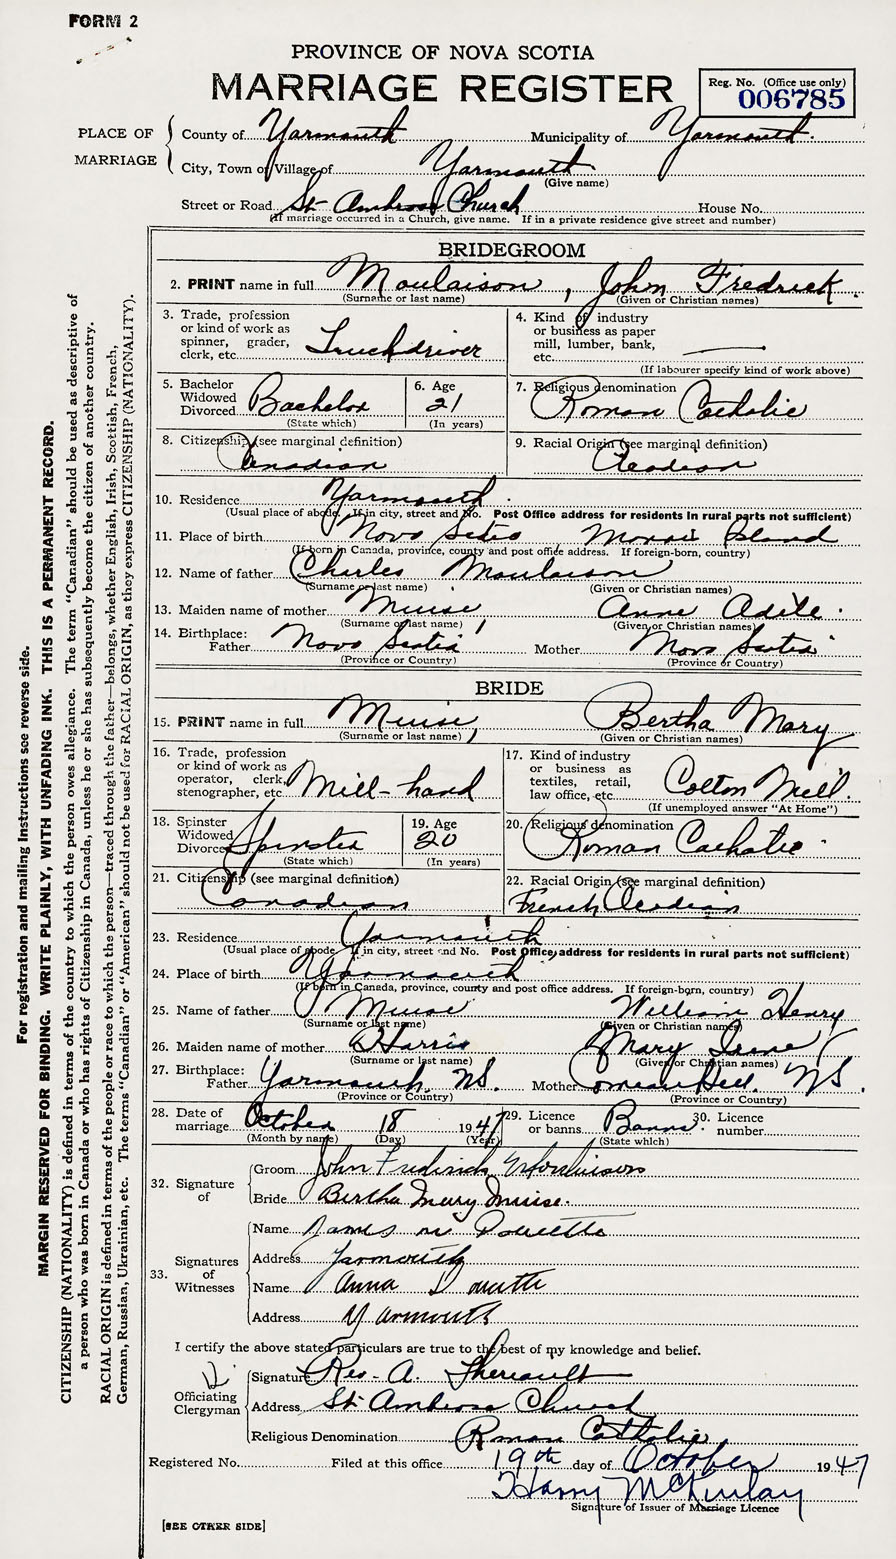 FORM 2
PROVINCE OF NOVA SCOTIA
MARRIAGE REGISTER
Reg. No. (Office use only)
006785
PLACE OF MARRIAGE
County of Yarmouth Municipality of Yarmouth.
City, Town or Village of Yarmouth
(Give name)
Street or Road St Ambrose Church House No.
(If marriage occurred in a Church, give name. If in a private residence give street and number)
BRIDEGROOM
2. PRINT name in full Moulaison, John Fredrick.
(Surname or last name) (Given or Christian names)
3. Trade, profession or kind of work as spinner, grader, clerk, etc. Truckdriver
4. Kind of industry or business as paper mill, lumber, bank, etc. —
(If labourer specify kind of work above)
5. Bachelor Widowed Divorced Bachelor
(State which)
6. Age 21
(In years)
7. Religious denomination Roman Catholic
8. Citizenship (see marginal definition)
Canadian
9. Racial Origin (see marginal definition)
Acadian
10. Residence Yarmouth.
(Usual place of abode. If in city, street and No. Post Office address for residents in rural parts not sufficient)
11. Place of birth Nova Scotia Morris Island
(If born in Canada, province, county and post office address. If foreign-born, country)
12. Name of father Charles Moulaison
(Surname or last name) (Given or Christian names)
13. Maiden name of mother Muise, Anne Adèle.
(Surname or last name) (Given or Christian names)
14. Birthplace:
Father Nova Scotia Mother Nova Scotia
(Province or Country) (Province or Country)
BRIDE
15. PRINT name in full Muise, Bertha Mary
(Surname or last name) (Given or Christian names)
16. Trade, profession or kind of work as operator, clerk, stenographer, etc. Mill-hand
17. Kind of industry or business as textiles, retail, law office, etc. Cotton Mill.
(If unemployed answer "At Home")
18. Spinster Widowed Divorced Spinster
(State which)
19. Age 20
(In years)
20. Religious denomination Roman Catholic
21. Citizenship (see marginal definition)
Canadian
22. Racial Origin (see marginal definition)
French Acadian
23. Residence Yarmouth
(Usual place of abode. If in city, street and No. Post Office address for residents in rural parts not sufficient)
24. Place of birth Yarmouth
(If born in Canada, province, county and post office address. If foreign-born, country)
25. Name of father Muise William Henry
(Surname or last name) (Given or Christian names)
26. Maiden name of mother Harris Mary Irene
(Surname or last name) (Given or Christian names)
27. Birthplace:
Father Yarmouth, N.S. Mother Hill. N.S.
(Province or Country) (Province or Country)
28. Date of marriage October 18 1947
(Month by name) (Day) (Year)
29. Licence or banns Banns.
(State which)
30. Licence number
32. Signature of
Groom John Fredrick Moulaison
Bride Bertha Mary Muise.
33. Signatures of Witnesses
Name James M Doucette
Address Yarmouth
Name Anna Doucette
Address Yarmouth
I certify the above stated particulars are true to the best of my knowledge and belief.
Officiating Clergyman
Signature Rev. A. Theriault
Address St Ambrose Church
Religious Denomination Roman Catholic
Registered No. Filed at this office 19th day of October 1947
Harry McKinlay
Signature of Issuer of Marriage Licence
[SEE OTHER SIDE]
For registration and mailing instructions see reverse side.
MARGIN RESERVED FOR BINDING. WRITE PLAINLY, WITH UNFADING INK. THIS IS A PERMANENT RECORD.
CITIZENSHIP (NATIONALITY) is defined in terms of the country to which the person owes allegiance. The term "Canadian" should be used as descriptive of
a person who was born in Canada or who has rights of Citizenship in Canada, unless he or she has subsequently become the citizen of another country.
RACIAL ORIGIN is defined in terms of the people or race to which the person—traced through the father—belongs, whether English, Irish, Scottish, French,
German, Russian, Ukrainian, etc. The terms "Canadian" or "American" should not be used for RACIAL ORIGIN, as they express CITIZENSHIP (NATIONALITY).